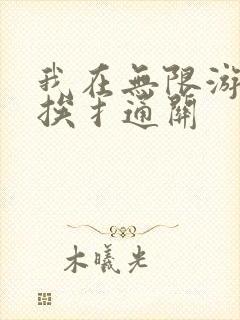 我在無限游
挨扌通關
木曦光